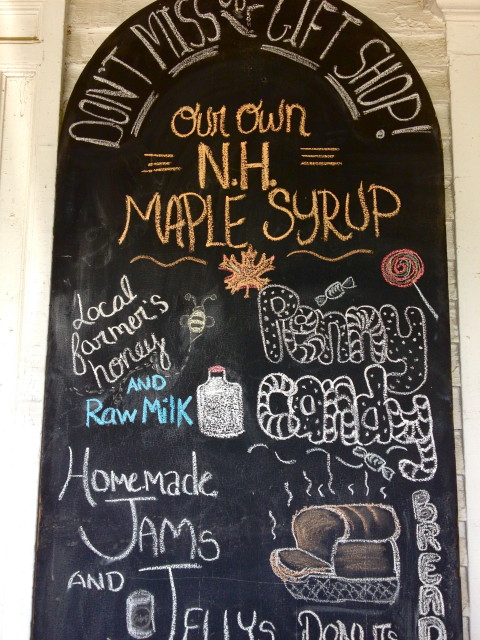 DON'T MISS OUR GIFT SHOP!
our own
N.H.
MAPLE SYRUP
Local
farmer's
honey
AND
Raw Milk
Penny
Candy
Homemade
JAMS
AND
JELLYS
BREAD
DONUTS